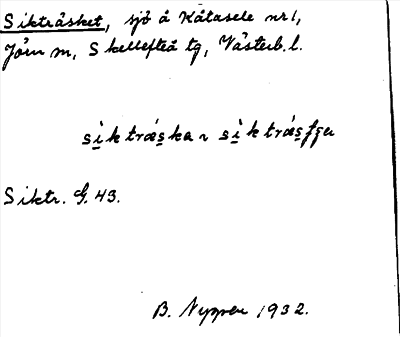 Sikträsket, sjö å Kåtasele nr 1,
Jörn sn, Skellefteå tg, Västerb. l.
Siktr. G. 43.
B. Nyman 1932.